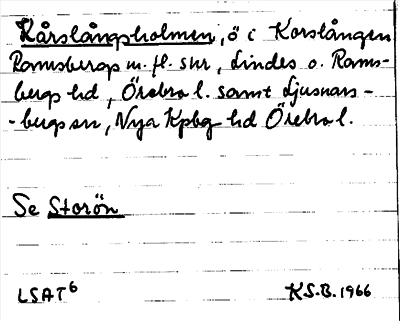 Kårslångsholmen, ö i Korslången
Ramsbergs m. fl. snr, Lindes o. Rams-
bergs hd, Örebro l. samt Ljusnars-
-bergs sn, Nya Kpbg hd Örebro l.
Se Storön
LSAT6
K.S.B. 1966